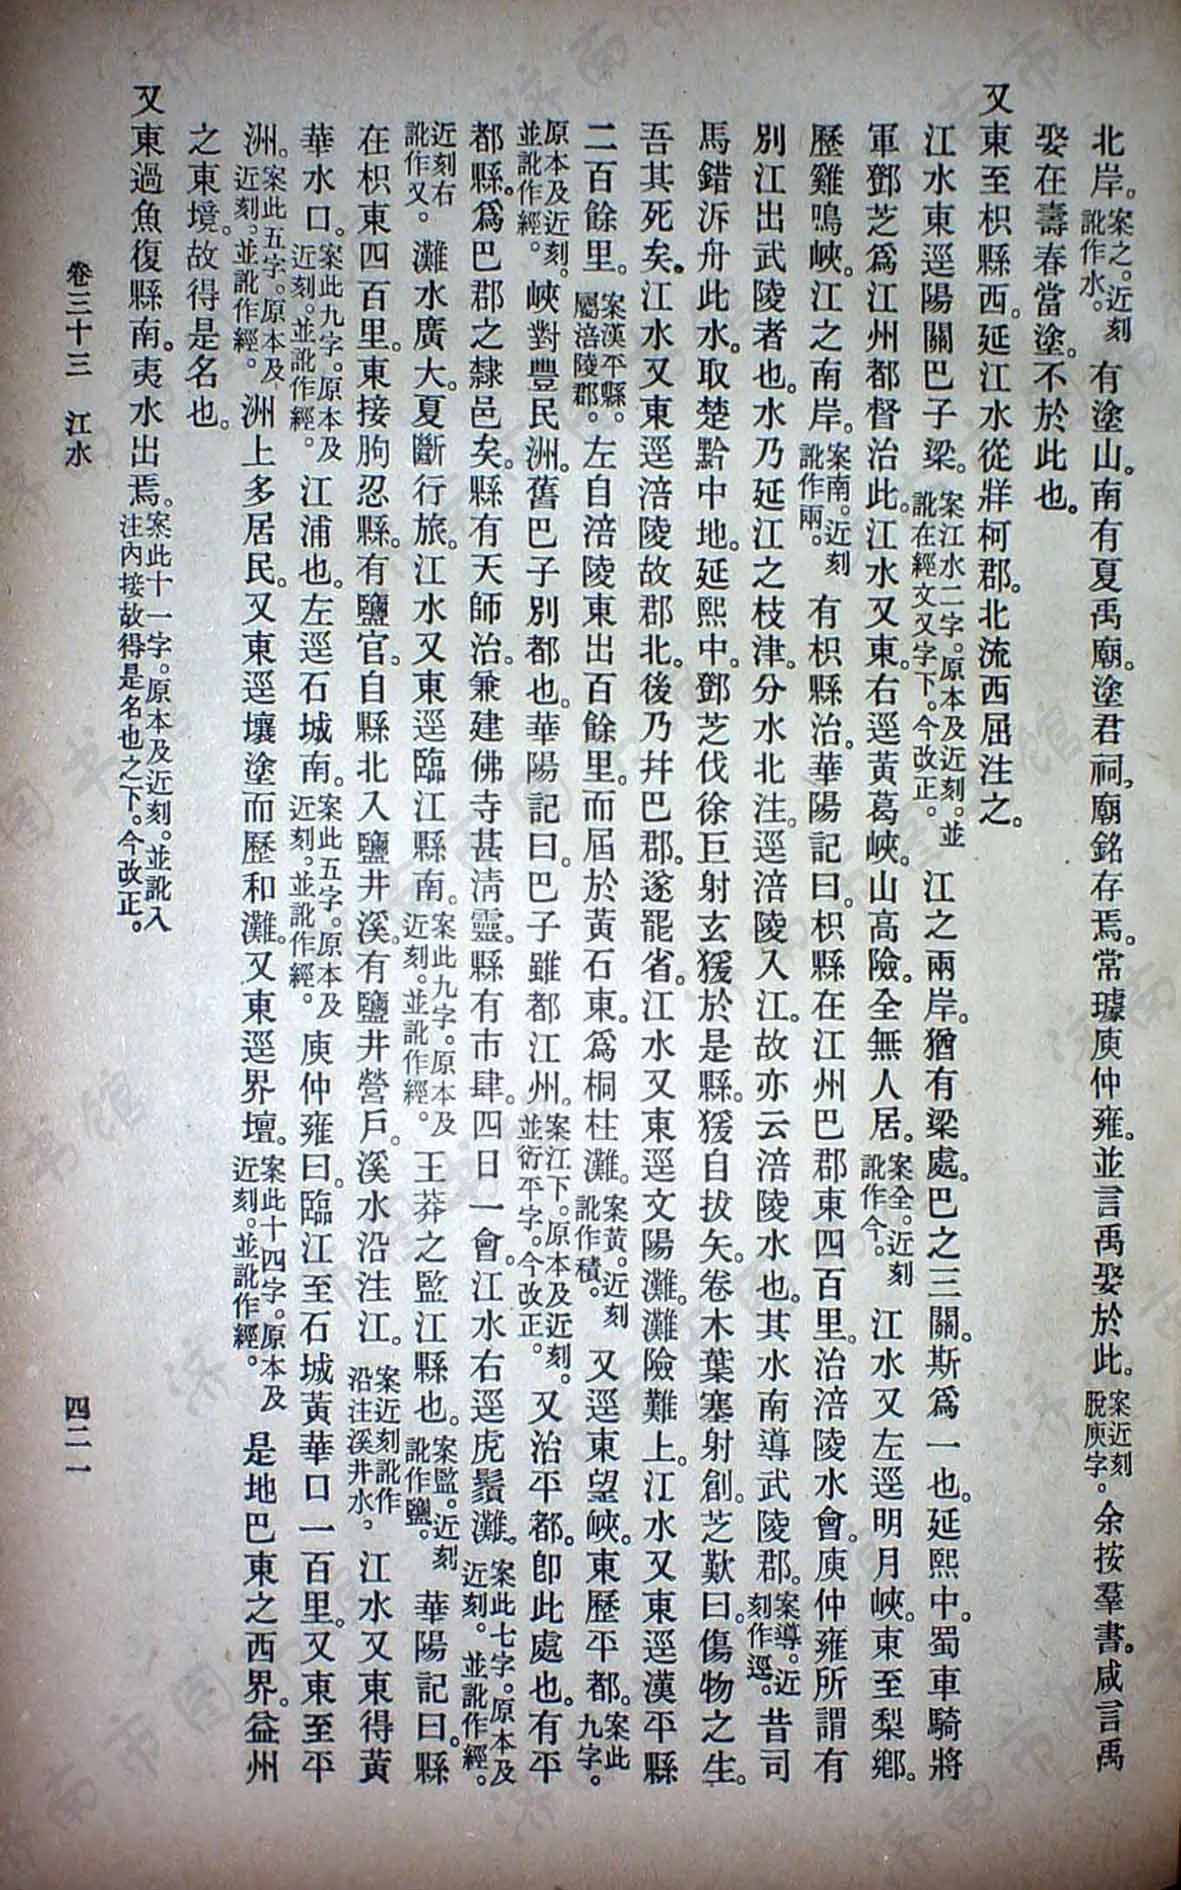 北岸。案之。近刻訛作水。有塗山。南有夏禹廟。塗君祠。廟銘存焉。常璩庾仲雍。並言禹娶於此。案近刻脫庾字。余按羣書。咸言禹
娶在壽春當塗。不於此也。
又東至枳縣西。延江水從牂柯郡。北流西屈注之。
江水東逕陽關巴子梁。案江水二字。原本及近刻。並訛在經文又字下。今改正。江之兩岸。猶有梁處。巴之三關。斯爲一也。延熙中。蜀車騎將
軍鄧芝爲江州都督治此。江水又東。右逕黃葛峽。山高險。全無人居。案全。近刻訛作今。江水又左逕明月峽。東至梨鄉。
歷雞鳴峽。江之南岸。案南。近刻訛作兩。有枳縣治。華陽記曰。枳縣在江州巴郡東四百里。治涪陵水會。庾仲雍所謂有
別江出武陵者也。水乃延江之枝津。分水北注。逕涪陵入江。故亦云涪陵水也。其水南導武陵郡。案導。近刻作逕。昔司
馬錯泝舟此水。取楚黔中地。延熙中。鄧芝伐徐巨射玄猨於是縣。猨自拔矢。卷木葉塞射創。芝歎曰。傷物之生。
吾其死矣。江水又東逕涪陵故郡北。後乃幷巴郡。遂罷省。江水又東逕文陽灘。灘險難上。江水又東逕漢平縣
二百餘里。案漢平縣。屬涪陵郡。左自涪陵東出百餘里。而屆於黃石東。爲桐柱灘。案黃。近刻訛作積。又逕東望峽。東歷平都。案此九字。
原本及近刻。並訛作經。峽對豐民洲。舊巴子別都也。華陽記曰。巴子雖都江州。案江下。原本及近刻。並衍平字。今改正。又治平都。卽此處也。有平
都縣。爲巴郡之隸邑矣。縣有天師治。兼建佛寺甚淸靈。縣有市肆。四日一會。江水右逕虎鬚灘。案此七字。原本及近刻。並訛作經。
近刻右訛作又。灘水廣大。夏斷行旅。江水又東逕臨江縣南。案此九字。原本及近刻。並訛作經。王莽之監江縣也。案監。近刻訛作鹽。華陽記曰。縣
在枳東四百里。東接朐忍縣。有鹽官。自縣北入鹽井溪。有鹽井營戶。溪水沿注江。案近刻訛作沿注溪井水。江水又東得黃
華水口。案此九字。原本及近刻。並訛作經。江浦也。左逕石城南。案此五字。原本及近刻。並訛作經。庾仲雍曰。臨江至石城黃華口一百里。又東至平
洲。案此五字。原本及近刻。並訛作經。洲上多居民。又東逕壤塗而歷和灘。又東逕界壇。案此十四字。原本及近刻。並訛作經。是地巴東之西界。益州
之東境。故得是名也。
又東過魚復縣南。夷水出焉。案此十一字。原本及近刻。並訛入注內接故得是名也之下。今改正。
卷三十三 江水
四二一